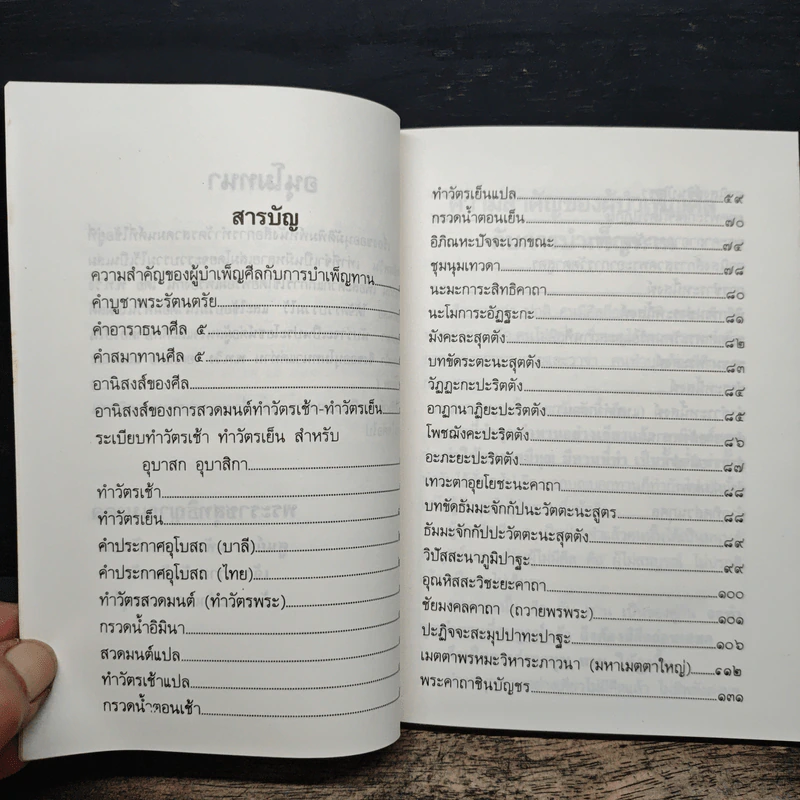 สารบัญ
ความสำคัญของผู้บำเพ็ญศีลกับการบำเพ็ญทาน
คำบูชาพระรัตนตรัย
คำอาราธนาศีล ๕
คำสมาทานศีล ๕
อานิสงส์ของศีล
อานิสงส์ของการสวดมนต์ทำวัตรเช้า-ทำวัตรเย็น
ระเบียบทำวัตรเช้า ทำวัตรเย็น สำหรับ
อุบาสก อุบาสิกา
ทำวัตรเช้า
ทำวัตรเย็น
คำประกาศอุโบสถ (บาลี)
คำประกาศอุโบสถ (ไทย)
ทำวัตรสวดมนต์ (ทำวัตรพระ)
กรวดน้ำอิมินา
สวดมนต์แปล
ทำวัตรเช้าแปล
กรวดน้ำตอนเช้า
ทำวัตรเย็นแปล ๕๙
กรวดน้ำตอนเย็น ๗๐
อภิณหะปัจจะเวกขณะ ๗๔
ชุมนุมเทวดา ๗๘
นะมะการะสิทธิคาถา ๘๐
นะโมการะอัฏฐะกะ ๘๑
มังคะละสุตตัง ๘๒
บทขัดระตะนะสุตตัง ๘๓
วัฏฏะกะปะริตตัง ๘๔
อาฏานาฏิยะปะริตตัง ๘๕
โพชฌังคะปะริตตัง ๘๖
อะภะยะปะริตตัง ๘๗
เทวะตาอุยโยชะนะคาถา ๘๘
บทขัดธัมมะจักกัปนะวัตตะนะสูตร ๘๘
ธัมมะจักกัปปะวัตตะนะสุตตัง ๘๙
วิปัสสะนาภูมิปาฐะ ๙๙
อุณหิสสะวิชะยะคาถา ๑๐๐
ชัยมงคลคาถา (ถวายพรพระ) ๑๐๑
ปะฏิจจะสะมุปปาทะปาฐะ ๑๐๖
เมตตาพรหมะวิหาระภาวนา (มหาเมตตาใหญ่) ๑๑๒
พระคาถาชินบัญชร ๑๓๑